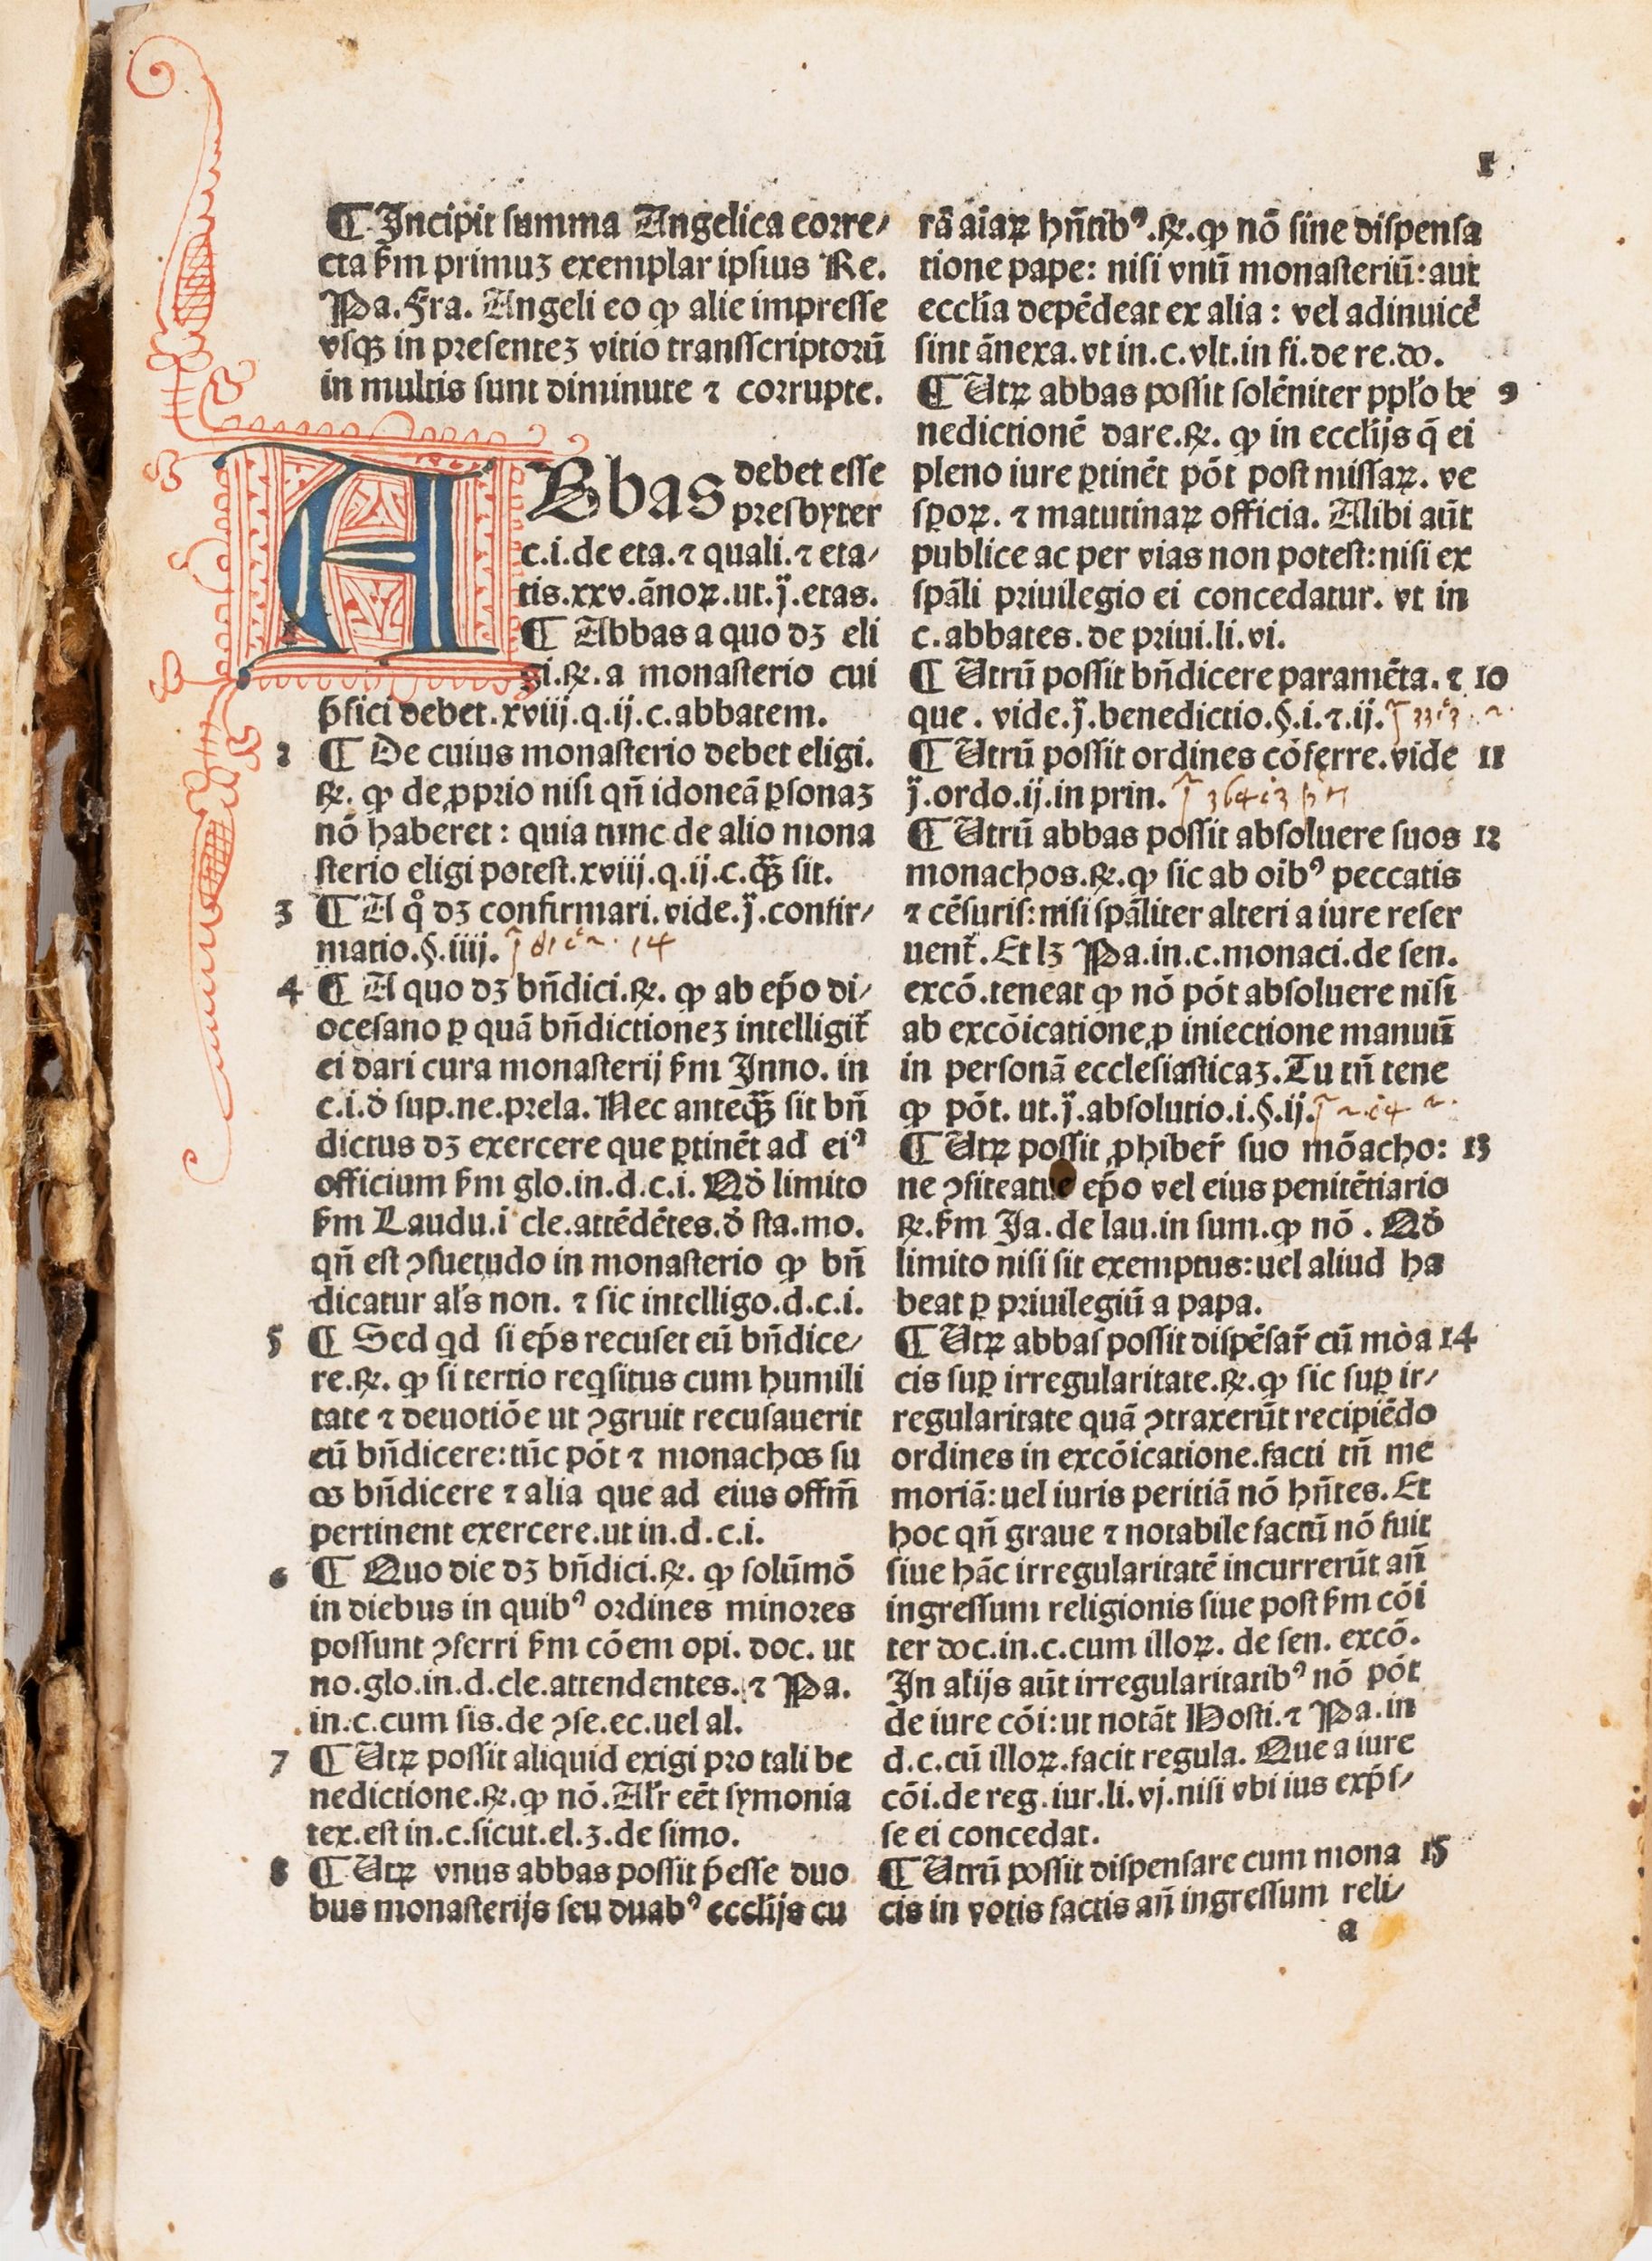 1
¶ Incipit summa Angelica corre/
cta s̄m primuꝫ exemplar ipsius Re.
Pa. Fra. Angeli eo ꝙ alie impresse
vsqꝫ in presenteꝫ vitio transscriptorū
in multis sunt diminute ⁊ corrupte.
ABbas debet esse
presbyter
c.i.de eta.⁊ quali.⁊ eta/
tis.xxv.ānoꝝ.ut.j̈.etas.
¶ Abbas a quo dꝫ eli
gi.℞.a monasterio cui
p̄fici debet.xviij.q.ij.c.abbatem.
2 ¶ De cuius monasterio debet eligi.
℞. ꝙ de ꝓprio nisi qn̄ idoneā ꝑsonaꝫ
nō haberet : quia tunc de alio mona
sterio eligi potest.xviij.q.ij.c.qꝫ̄ sit.
3 ¶ A qͦ dꝫ confirmari.vide.j̈.confir/
matio.§.iiij. 14
4 ¶ A quo dꝫ bn̄dici.℞. ꝙ ab ep̄o di/
ocesano ꝑ quā bn̄dictioneꝫ intelligit᷑
ei dari cura monasterij s̄m Inno. in
c.i.đ sup.ne.prela. Nec anteqꝫ̄ sit bn̄
dictus dꝫ exercere que ꝑtinēt ad eiꝰ
officium s̄m glo.in.d.c.i. Qđ limito
s̄m Laudu.i cle.attēdētes.đ sta.mo.
qn̄ est ꝯsuetudo in monasterio ꝙ bn̄
dicatur al's non. ⁊ sic intelligo.d.c.i.
5 ¶ Sed qd si ep̄s recuset eū bn̄dice/
re.℞. ꝙ si tertio reqsitus cum humili
tate ⁊ deuotiōe ut ꝯgruit recusauerit
eū bn̄dicere:tūc pōt ⁊ monachos su
os bn̄dicere ⁊ alia que ad eius offm̄
pertinent exercere.ut in.d.c.i.
6 ¶ Quo die dꝫ bn̄dici.℞. ꝙ solūmō
in diebus in quibꝰ ordines minores
possunt ꝯferri s̄m cōem opi. doc. ut
no.glo.in.d.cle.attendentes. ⁊ Pa.
in.c.cum sis.de ꝯse.ec.uel al.
7 ¶ Utꝝ possit aliquid exigi pro tali be
nedictione.℞.ꝙ nō.Al'r eēt symonia
tex.est in.c.sicut.el.3.de simo.
8 ¶ Utꝝ vnus abbas possit p̄esse duo
bus monasterijs seu duabꝰ eccl'ijs cu
rā aīaꝝ hn̄tibꝰ.℞.ꝙ nō sine dispensa
tione pape: nisi vnū monasteriū:aut
eccl'ia depēdeat ex alia : vel adinuicē
sint ānexa.vt in.c.vlt.in fi.de re.do.
¶ Utꝝ abbas possit solēniter ppl'o be 9
nedictionē dare.℞. ꝙ in eccl'ijs q̄ ei
pleno iure ꝑtinēt pōt post missaꝝ. ve
sꝑoꝝ. ⁊ matutinaꝝ officia. Alibi aūt
publice ac per vias non potest:nisi ex
spāli priuilegio ei concedatur. vt in
c.abbates.de priui.li.vi.
¶ Utrū possit bn̄dicere paramēta. ⁊ 10
que. vide.j̈.benedictio.§.i.⁊.ij.
¶ Utrū possit ordines cōferre.vide 11
j̈.ordo.ij.in prin.
¶ Utrū abbas possit absoluere suos 12
monachos.℞.ꝙ sic ab oibꝰ peccatis
⁊ cēsuris:nisi spāliter alteri a iure reser
uent᷑. Et lꝫ Pa.in.c.monaci.de sen.
excō.teneat ꝙ nō pōt absoluere nisi
ab excōicatione ꝑ iniectione manuū
in personā ecclesiasticaꝫ.Tu tn̄ tene
ꝙ pōt. ut.j̈.absolutio.i.§.ij.
¶ Utꝝ possit ꝓhiber᷑ suo mōacho: 13
ne ꝯfiteatur ep̄o vel eius penitētiario
℞.s̄m Ja.de lau.in sum.ꝙ nō . Qđ
limito nisi sit exemptus:uel aliud ha
beat ꝑ priuilegiū a papa.
¶ Utꝝ abbas possit dispēsar᷑ cū mōa 14
cis suꝑ irregularitate.℞.ꝙ sic suꝑ ir/
regularitate quā ꝯtraxerūt recipiēdo
ordines in excōicatione.facti tn̄ me
moriā:uel iuris peritiā nō hn̄tes. Et
hoc qn̄ graue ⁊ notabile factū nō fuit
siue hāc irregularitatē incurrerūt an̄
ingressum religionis siue post s̄m cōi
ter doc.in.c.cum illoꝝ. de sen. excō.
In al'ijs aūt irregularitatibꝰ nō pōt
de iure cōi:ut notāt Hosti.⁊ Pa.in
d.c.cū illoꝝ.facit regula. Que a iure
cōi.de reg.iur.li.vj.nisi vbi ius exp̄s/
se ei concedat.
¶ Utrū possit dispensare cum mona 15
cis in votis factis an̄ ingressum reli/
a